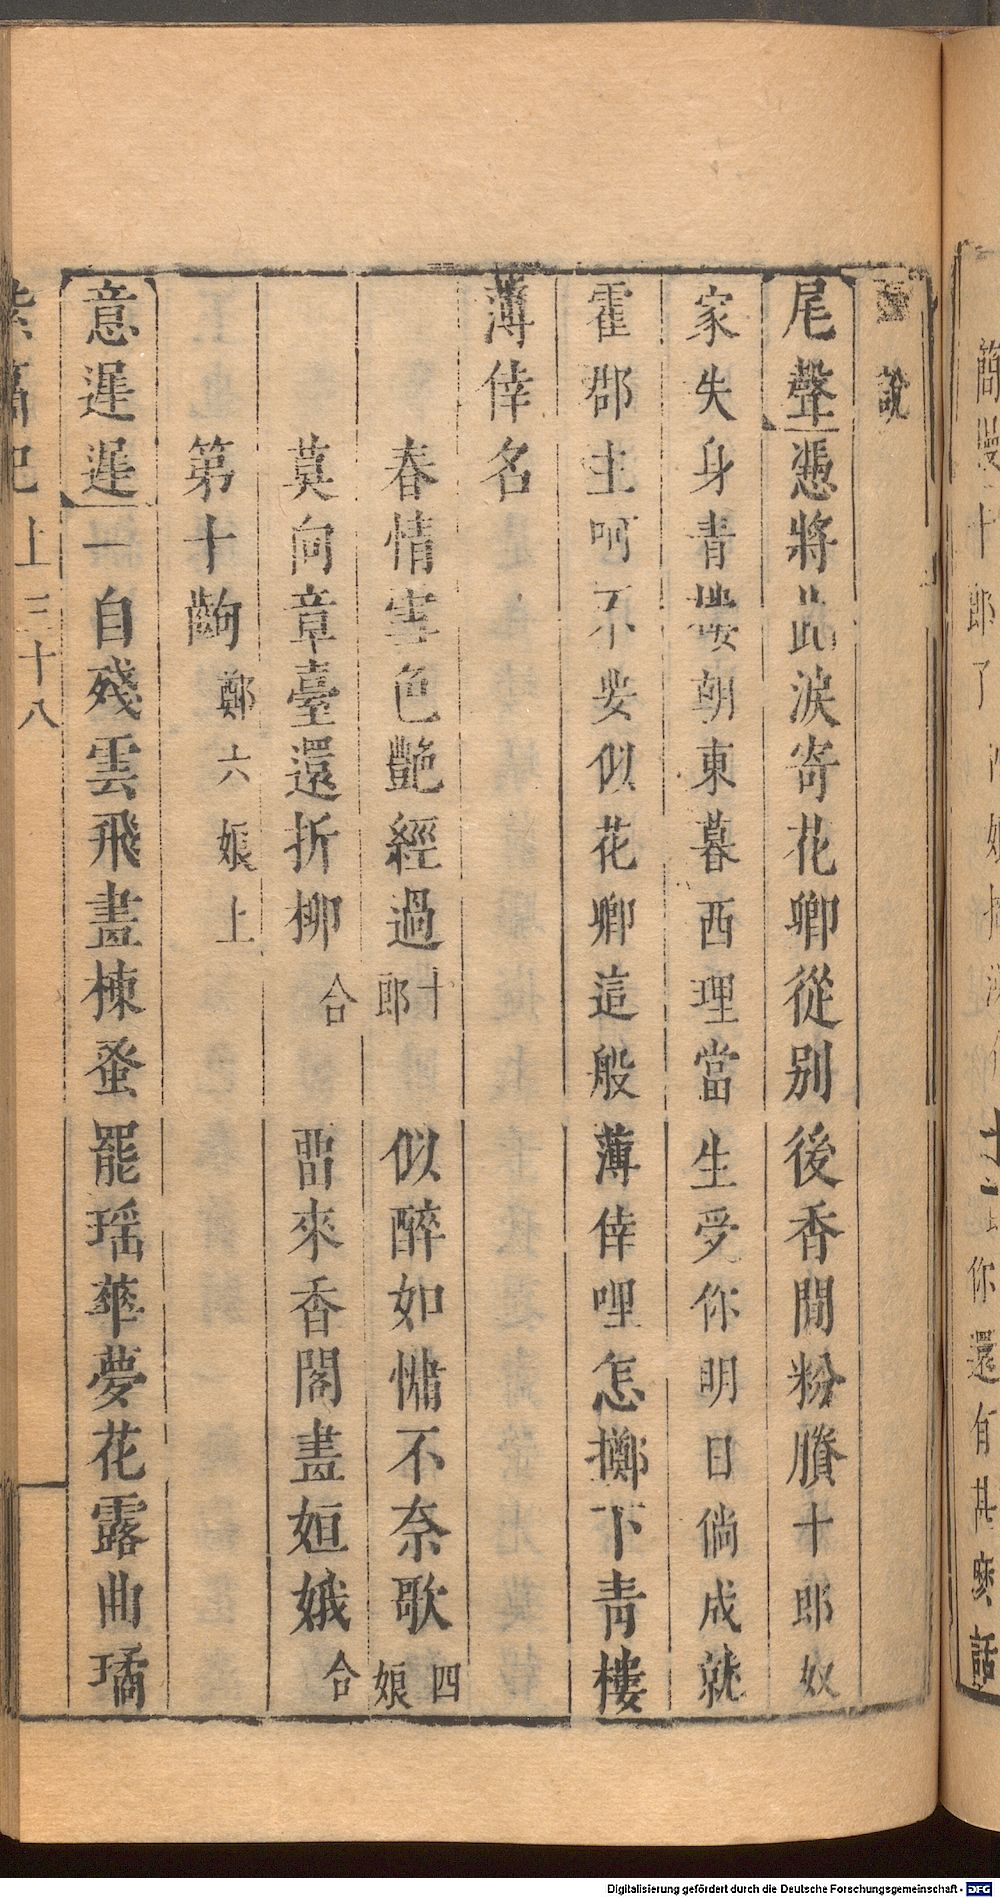 簡 十郎了 你還有甚麽話
說
尾聲憑將此淚寄花卿從别後香閒粉賸十郎奴
家失身青樓朝東暮西理當生受你明日倘成就
霍郡主呵不要似花卿這般薄倖哩怎擲下青樓
薄倖名
春情害色艷經過十郎似醉如慵不奈歌四娘
莫向章臺還折柳合畱來香閣畫姮娥合
第十齣鄭六娘上
意遲遲一自殘雲飛畫棟蚤罷瑤華夢花露曲璚
紫簫記 上 三十八
Digitalisierung gefördert durch die Deutsche Forschungsgemeinschaft - DFG